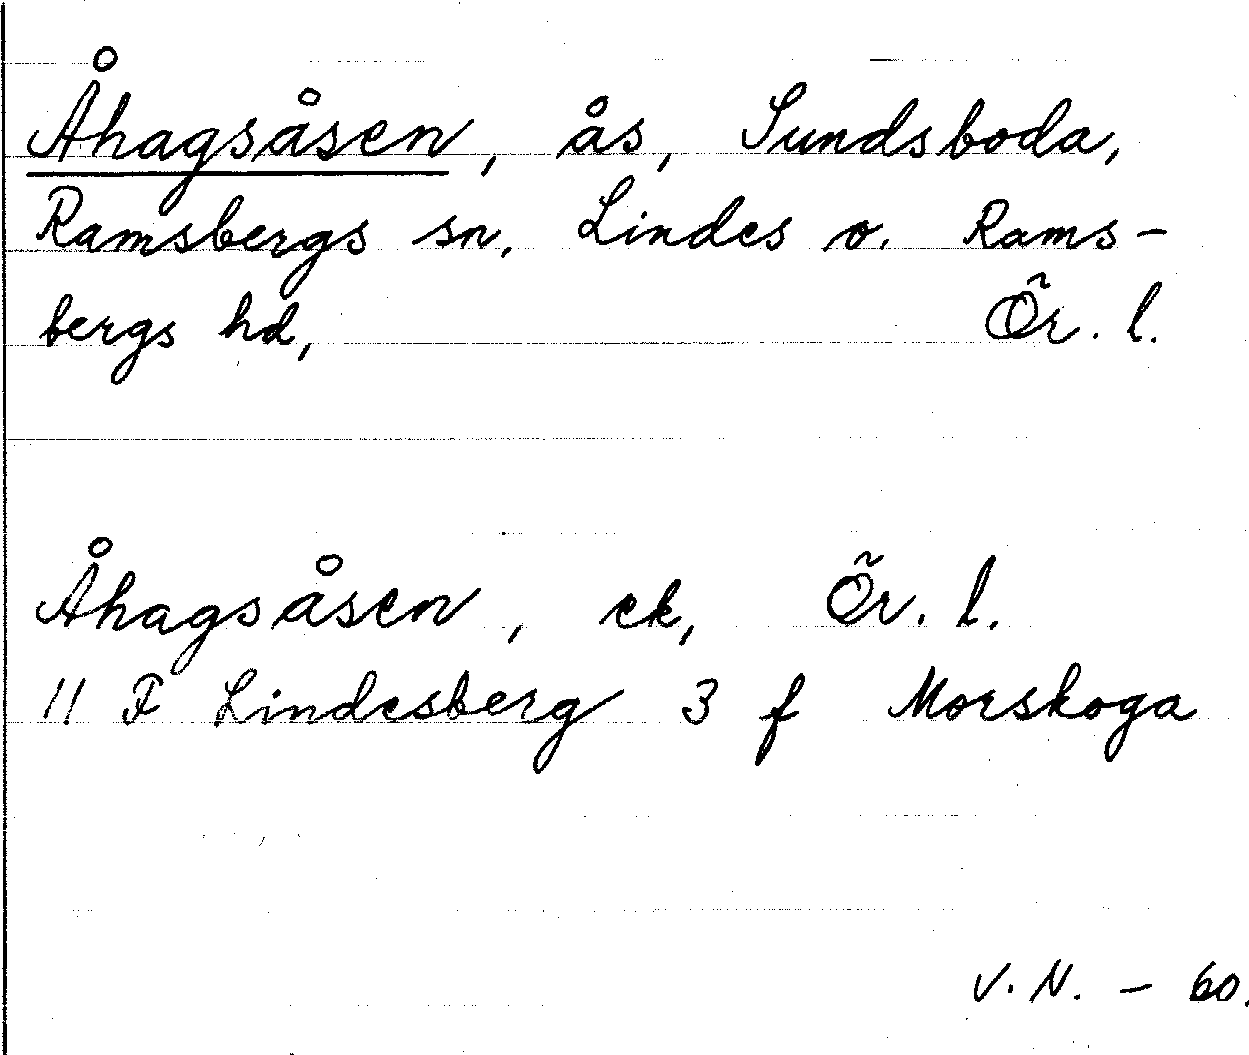 Åhagsåsen, ås, Sundsboda,
Ramsbergs sn, Lindes o. Rams-
bergs hd, Ör. l.
Åhagsåsen, ek, Ör. l.
11 F Lindesberg 3 f Morskoga
V. N. - 60.